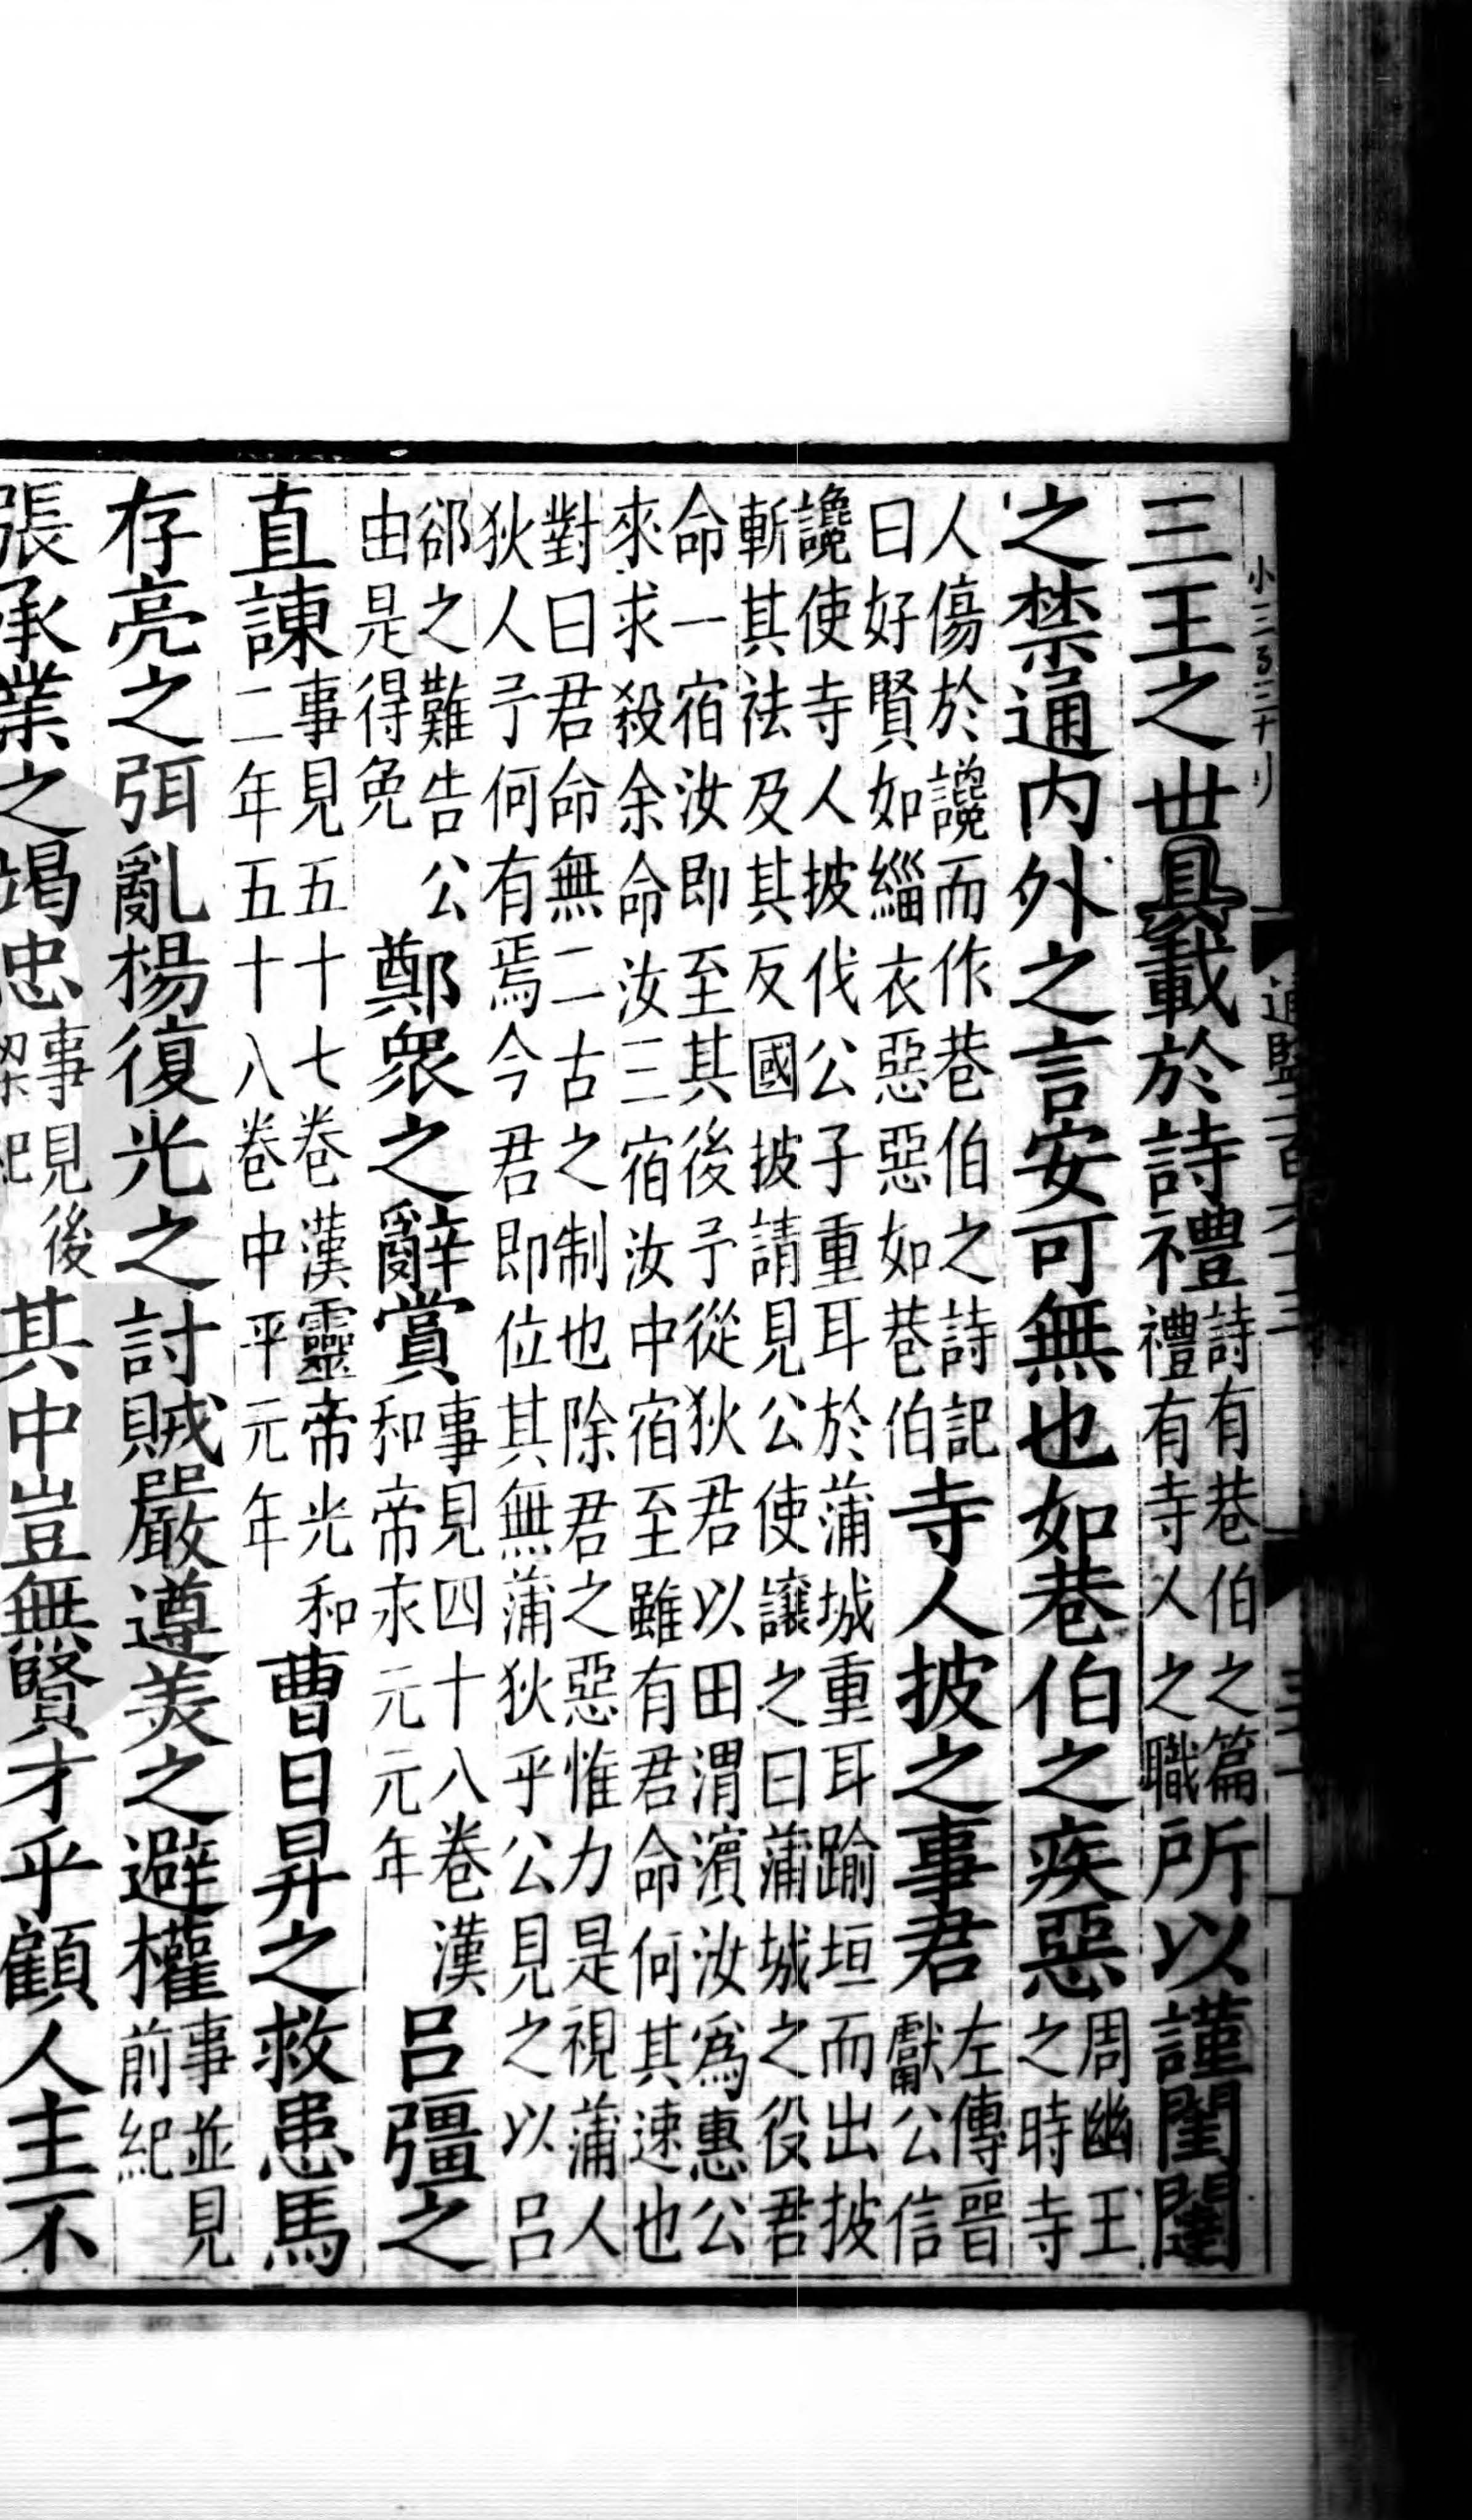 三王之世具載於詩禮詩有巷伯之篇禮有寺人之職所以謹閨闥
之禁通内外之言安可無也如巷伯之疾惡周幽王之時寺
人傷於讒而作巷伯之詩記曰好賢如緇衣惡惡如巷伯寺人披之事君左傳晉獻公信
讒使寺人披伐公子重耳於蒲城重耳踰垣而出披斬其袪及其反國披請見公使讓之曰蒲城之役君
命一宿汝即至其後予從狄君以田渭濱汝爲惠公來求殺余命汝三宿汝中宿至雖有君命何其速也
對曰君命無二古之制也除君之惡惟力是視蒲人狄人予何有焉今君即位其無蒲狄乎公見之以呂
郤之難告公由是得免鄭衆之辭賞事見四十八卷漢和帝永元元年呂彊之
直諫事見五十七卷漢靈帝光和二年五十八卷中平元年曹日昇之救患馬
存亮之弭亂楊復光之討賊嚴遵美之避權事並見前紀
張承業之竭忠事見後梁紀其中豈無賢才乎顧人主不